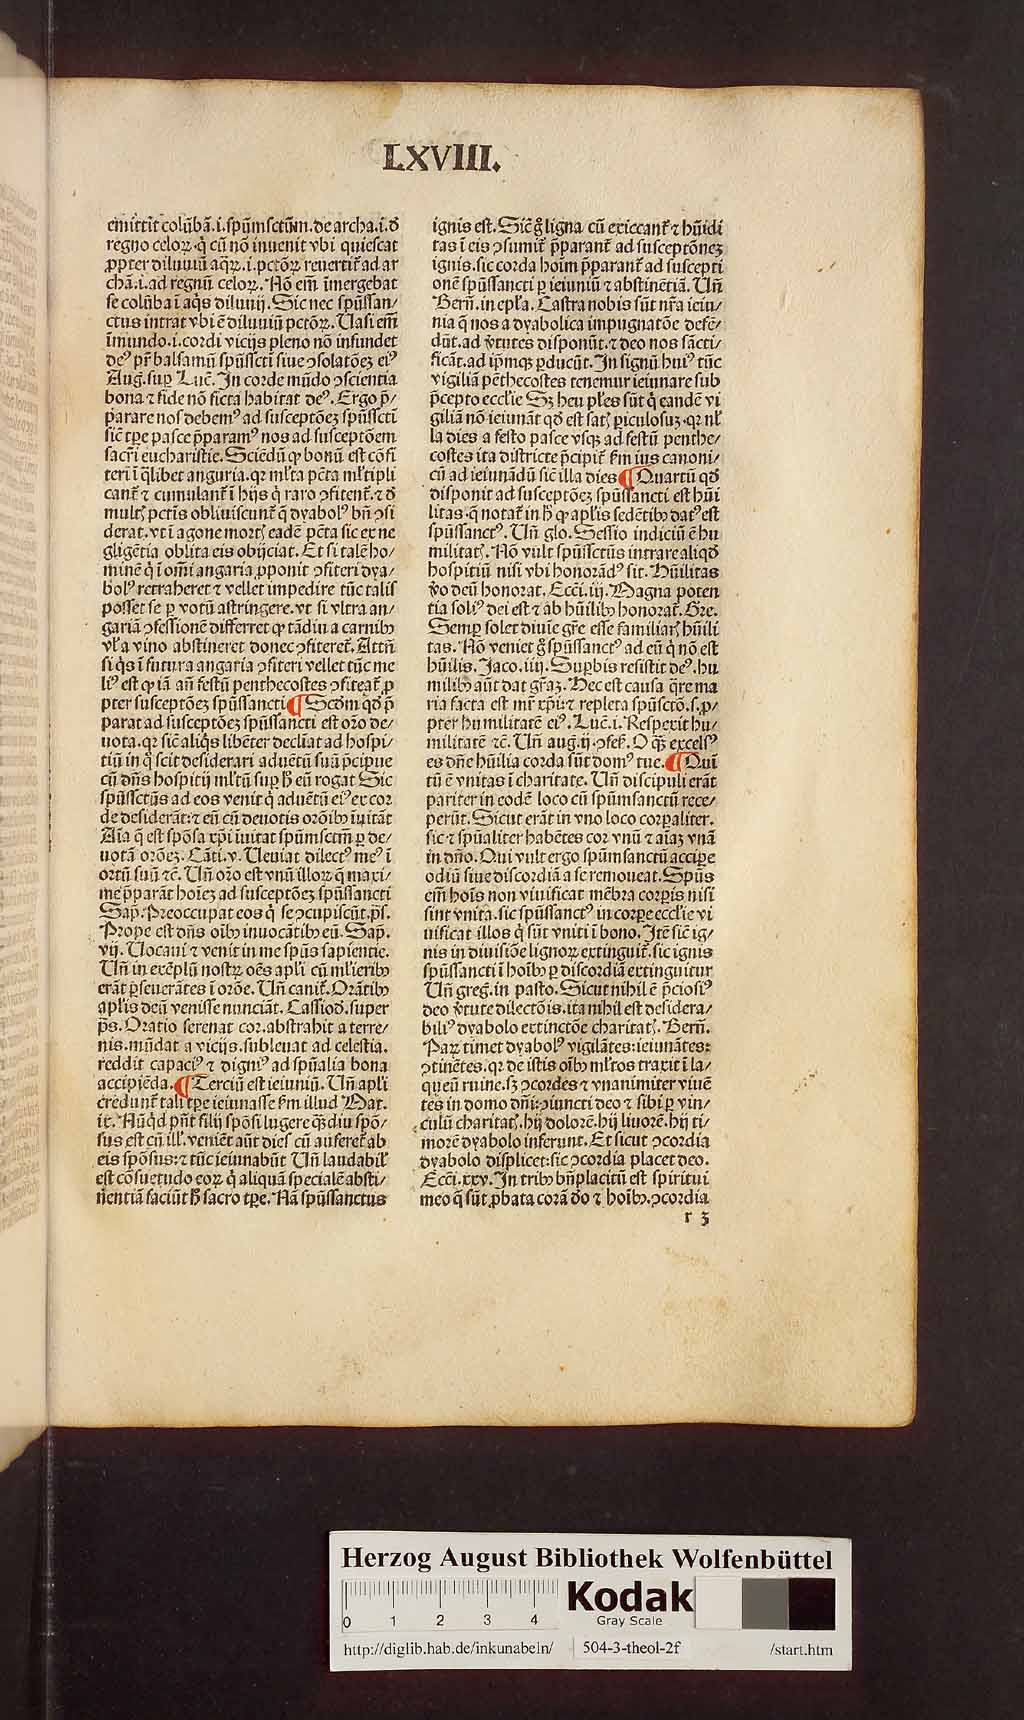 LXVIII.
emittit colūbā.i.spūmsctūm.de archa.i.ō
regno celoꝝ.q̇ cū nō inuenit vbi quiescat
ꝓpter diluuiū aq̄ꝝ.i.pctōꝝ reuertit᷑ ad ar
chā.i.ad regnū celoꝝ. Nō em̄ īmergebat
se colūba ī aq̇s diluuij. Sic nec spūssan/
ctus intrat vbi ē diluuiū pctōꝝ. Uasi em̄
īmundo.i.cordi vicijs pleno nō infundet
deꝰ pr̄ balsamū spūsscti siue ↄsolatōeꝫ eiꝰ
Aug̃.suꝑ Luc̄. In corde mūdo ↄscientia
bona ⁊ fide nō ficta habitat deꝰ. Ergo p̄/
parare nos debemꝰ ad susceptōeꝫ spūsscti
sic̄ tꝑe pasce p̄paramꝰ nos ad susceptōem
sacr̄i eucharistie. Sciēdū ꝙ bonū est cōfi
teri ī q̄libet anguria.qꝛ ml̄ta pctā ml̄tipli
cant᷑ ⁊ cumulant᷑ ī hijs q̇ raro ↄfitent᷑.⁊ ō
multꝭ pctīs obliuiscunt᷑ q̄ dyabolꝰ bn̄ ↄsi
derat.vt ī agone mortꝭ eadē pctā sic ex ne
gligētia oblita eis obijciat. Et si talē ho/
minē q̇ ī om̄i angaria ꝓponit ↄfiteri dya/
bolꝰ retraheret ⁊ vellet impedire tūc talis
posset se ꝑ votū astringere.vt si vltra an/
gariā ↄfessionē differret ꝙ tādiu a carnibꝫ
vl̄ a vino abstineret donec ↄfiteret᷑. Attn̄
si q̇s ī futura angaria ↄfiteri vellet tūc me
liꝰ est ꝙ iā an̄ festū penthecostes ↄfiteat᷑ ꝓ
pter susceptōeꝫ spūssancti ¶ Scōm qō p̄
parat ad susceptōeꝫ spūssancti est orō de/
uota.qꝛ sic̄ aliq̇s libēter declīat ad hospi/
tiū in q̇ scit desiderari aduētū suū p̄cipue
cū dn̄s hospitij ml̄tū suꝑ h̄ eū rogat Sic
spūssctūs ad eos venit q̇ aduētū eiꝰ ex cor
de desiderāt:⁊ eū cū deuotis orōibꝫ īuitāt
Aīa q̄ est spōsa xp̄i īuitat spūmsctm̄ ꝑ de/
uotā orōeꝫ. Cāti.v. Ueniat dilectꝰ meꝰ ī
ortū suū ⁊c̄. Un̄ orō est vnū illoꝝ q̄ maxi/
me p̄parāt hoīeꝫ ad susceptōeꝫ spūssancti
Sap̄. Preoccupat eos q̇ se ↄcupiscūt.p̄s.
Prope est dn̄s oībꝫ inuocātibꝫ eū. Sap̄.
vij. Uocaui ⁊ venit in me spūs sapientie.
Un̄ in exēplū nostꝝ oēs apl̄i cū ml̄ieribꝫ
erāt ꝑseuerātes ī orōe. Un̄ canit᷑. Orātibꝫ
apl̄is deū venisse nunciāt. Cassioō.super
p̄s. Oratio serenat cor.abstrahit a terre/
nis.mūdat a vicijs.subleuat ad celestia.
reddit capaciꝰ ⁊ digniꝰ ad spūalia bona
accipiēda. ¶ Terciū est ieiuniū. Un̄ apl̄i
credunt᷑ tali tꝑe ieiunasse ẜm illud Mat.
ix. Nūq̇d pn̄t filij spōsi lugere q̄diu spō/
sus est cū ill̄. veniēt aūt dies cū auferet᷑ ab
eis spōsus:⁊ tūc ieiunabūt Un̄ laudabil̄
est cōsuetudo eoꝝ q̇ aliquā specialē absti/
nentiā faciūt h̄ sacro tꝑe. Nā spūssanctus
ignis est. Sic̄ g̊ ligna cū exiccant᷑ ⁊ hūidi
tas ī eis ↄsumit᷑ p̄parant᷑ ad susceptōneꝫ
ignis.sic corda hoīm p̄parant᷑ ad suscepti
onē spūssancti ꝑ ieiuniū ⁊ abstinētiā. Un̄
Bern̄.in epl̄a. Castra nobis sūt nr̄a ieiu/
nia q̄ nos a dyabolica impugnatōe defē/
dūt.ad v̄tutes disponūt.⁊ deo nos sācti/
ficāt.ad ip̄mqꝫ ꝑducūt. In signū huiꝰ tūc
vigiliā pēthecostes tenemur ieiunare sub
p̄cepto eccl̄ie Sꝫ heu pl̄es sūt q̇ eandē vi
giliā nō ieiunāt qō est satꝭ ꝑiculosuꝫ.qꝛ nl̄
la dies a festo pasce vsqꝫ ad festū penthe/
costes ita districte p̄cipit᷑ ẜm ius canoni/
cū ad ieiunādū sic̄ illa dies ¶ Quartū qō
disponit ad susceptōeꝫ spūssancti est hūi
litas.q̄ notat᷑ in h̄ ꝙ apl̄is sedētibꝫ datꝰ est
spūssanctꝰ. Un̄ glo. Sessio indiciū ē hu
militatꝭ. Nō vult spūssctūs intrare aliqō
hospitiū nisi vbi honorādꝰ sit. Hūilitas
v̊o deū honorat. Ecci.iij. Magna poten
tia soliꝰ dei est ⁊ ab hūilibꝫ honorat᷑. Gre.
Semꝑ solet diuīe gr̄e esse familiarꝭ hūili
tas. Nō veniet g̊ spūssanctꝰ ad eū q̇ nō est
hūilis. Jaco.iiij. Suꝑbis resistit deꝰ.hu
milibꝫ aūt dat gr̄aꝫ. Hec est causa q̄re ma
ria facta est mr̄ xp̄i:⁊ repleta spūsctō.s.ꝓ/
pter humilitatē eiꝰ. Luc̄.i. Respexit hu/
militatē ⁊c̄. Un̄ aug.ij.ↄfes̄. O q̄ꝫ excelsꝰ
es dn̄e hūilia corda sūt domꝰ tue. ¶ Quī
tū ē vnitas ī charitate. Un̄ discipuli erāt
pariter in eodē loco cū spūmsanctū rece/
perūt. Sicut erāt in vno loco corꝑaliter.
sic ⁊ spūaliter habētes cor vnū ⁊ aīaꝫ vnā
in dn̄o. Qui vult ergo spūmsanctū acciꝑe
odiū siue discordiā a se remoueat. Spūs
em̄ hoīs non viuificat mēbra corꝑis nisi
sint vnita.sic spūssanctꝰ in corꝑe eccl̄ie vi
uificat illos q̇ sūt vniti ī bono. Itē sic ig/
nis in diuisiōe lignoꝝ extinguit᷑.sic ignis
spūssancti ī hoībꝫ ꝑ discordiā extinguitur
Un̄ greg̃.in pasto. Sicut nihil ē p̄ciosiꝰ
deo v̄tute dilectōis.ita nihil est desidera/
biliꝰ dyabolo extinctōe charitatꝭ. Bern̄.
Paꝝ timet dyabolꝰ vigilātes:ieiunātes:
ↄtinētes.qꝛ de istis oībꝫ ml̄tos traxit ī la/
queū ruine.sꝫ ↄcordes ⁊ vnanimiter viuē
tes in domo dn̄i:ↄiuncti deo ⁊ sibi ꝑ vin/
culū charitatꝭ.hij dolorē.hij liuorē.hij ti/
morē dyabolo inferunt. Et sicut ↄcordia
dyabolo displicet:sic ↄcordia placet deo.
Ecci.xxv. In tribꝫ bn̄placitū est spiritui
meo q̄ sūt ꝓbata corā ōo ⁊ hoībꝫ.ↄcordia
r 3
Herzog August Bibliothek Wolfenbüttel
0 1 2 3 4
Kodak
Gray Scale
http://diglib.hab.de/inkunabeln/ 504-3-theol-2f /start.htm